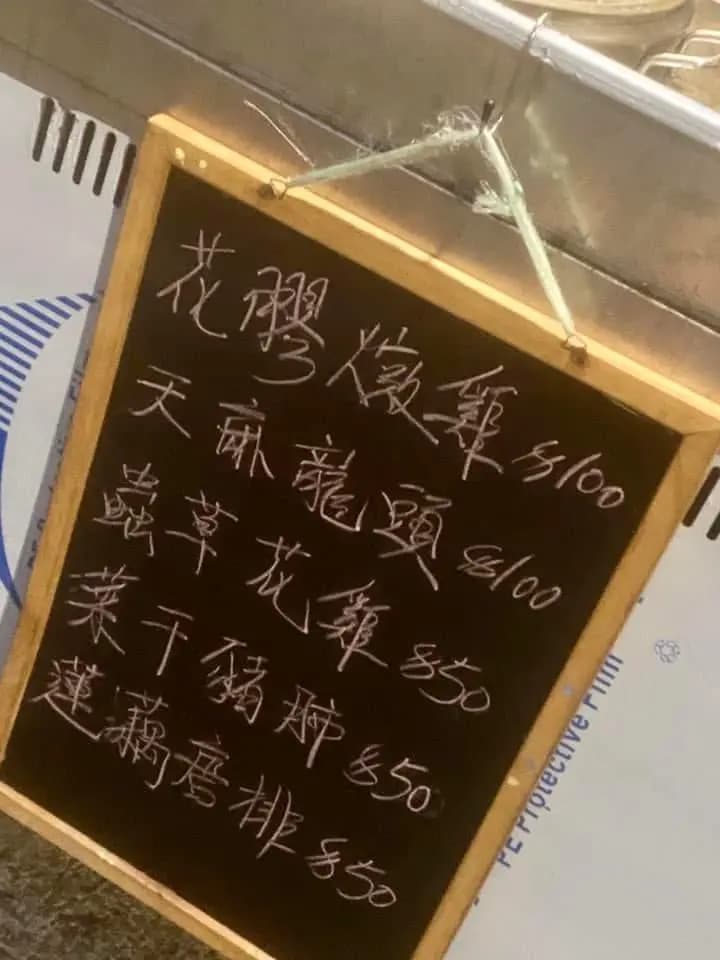 花膠燉雞 $100
天麻龍頭 $100
蟲草花雞 $50
菜干豬肺 $50
蓮藕唐排 $50
PE Protective Film